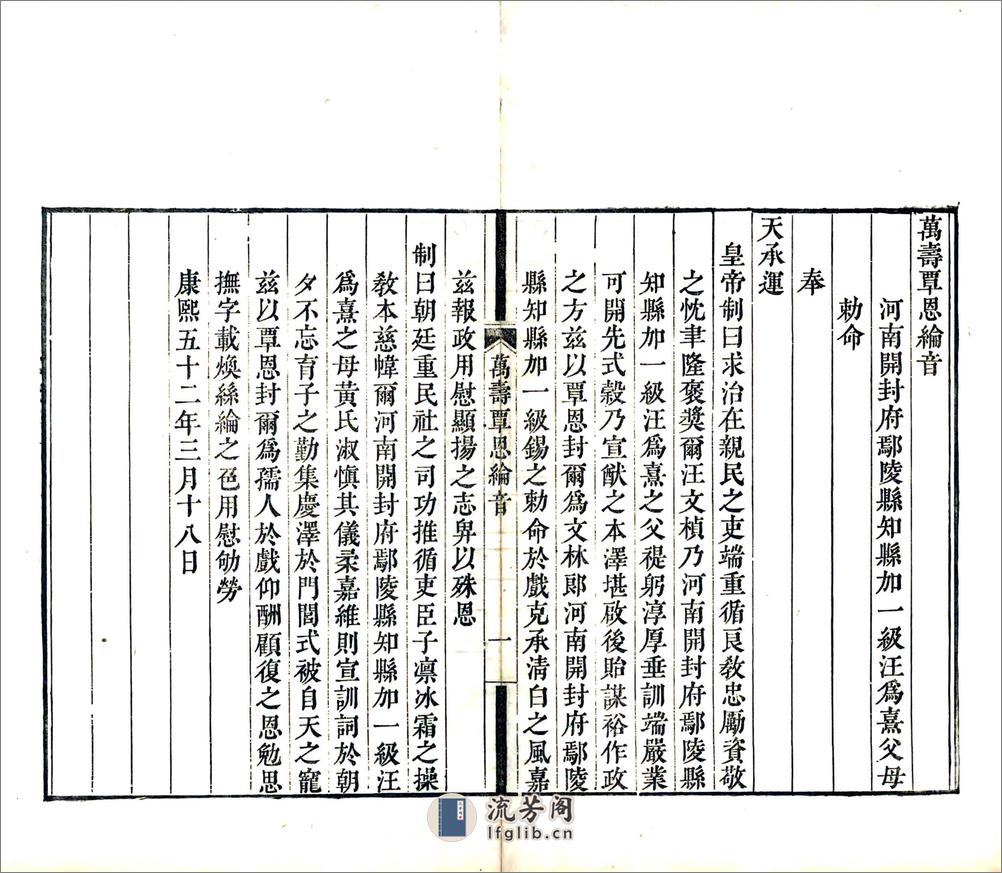 萬壽覃恩綸音
河南開封府鄢陵縣知縣加一級汪爲熹父母
勅命
奉
天承運
皇帝制曰求治在親民之吏端重循良敎忠勵資敬
之忱聿隆褒奬爾汪文楨乃河南開封府鄢陵縣
知縣加一級汪爲熹之父禔躬淳厚垂訓端嚴業
可開先式穀乃宣猷之本澤堪啟後貽謀裕作政
之方兹以覃恩封爾爲文林郎河南開封府鄢陵
縣知縣加一級錫之勅命於戲克承清白之風嘉
萬壽覃恩綸音
一
兹報政用慰顯揚之志畀以殊恩
制曰朝廷重民社之司功推循吏臣子凛冰霜之操
敎本慈幃爾河南開封府鄢陵縣知縣加一級汪
爲熹之母黃氏淑慎其儀柔嘉維則宣訓詞於朝
夕不忘育子之勤集慶澤於門閭式被自天之寵
兹以覃恩封爾爲孺人於戲仰酬顧復之恩勉思
撫字載煥絲綸之色用慰劬勞
康熙五十二年三月十八日
流芳阁
lfglib.cn